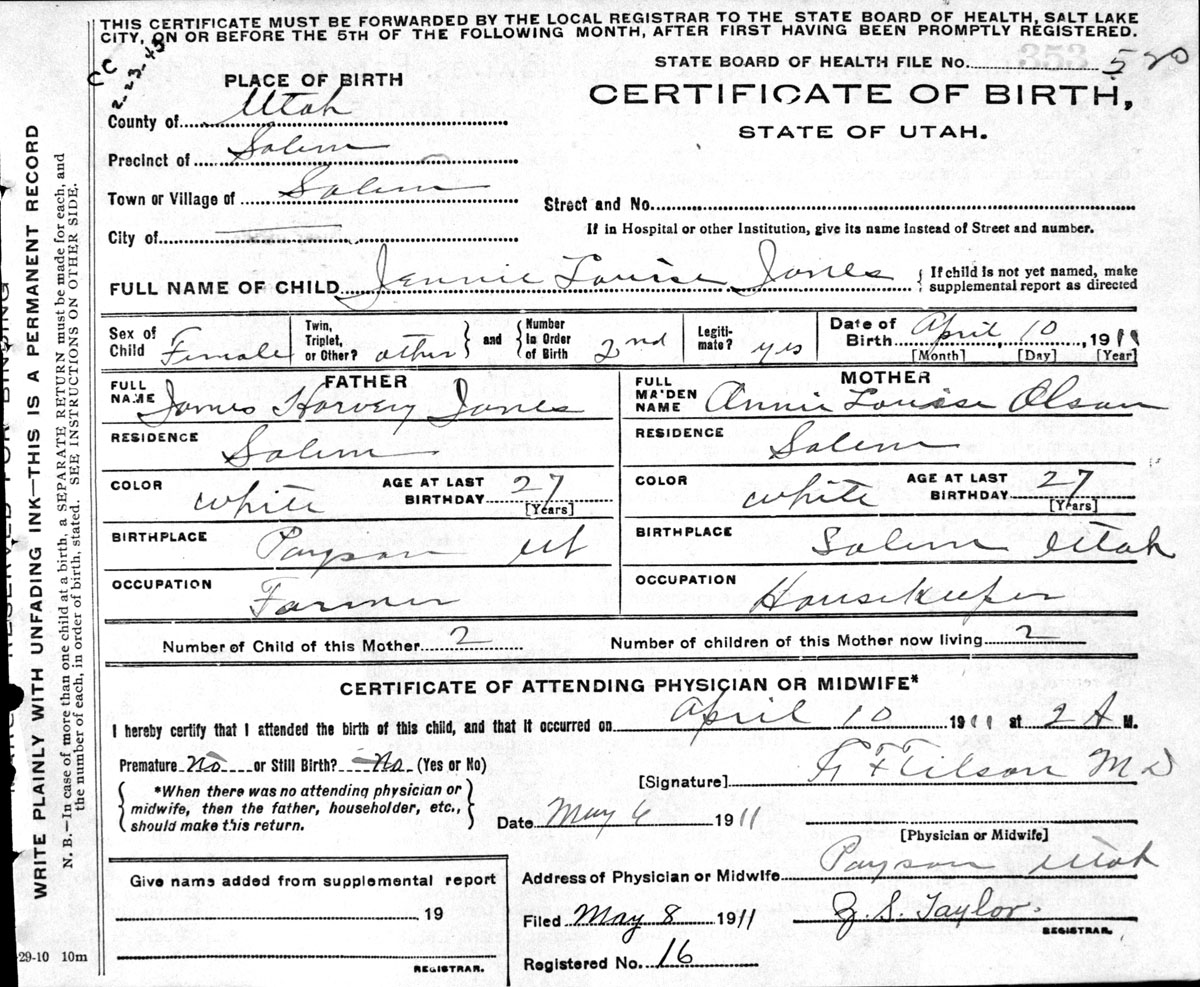 THIS CERTIFICATE MUST BE FORWARDED BY THE LOCAL REGISTRAR TO THE STATE BOARD OF HEALTH, SALT LAKE
CITY, ON OR BEFORE THE 5TH OF THE FOLLOWING MONTH, AFTER FIRST HAVING BEEN PROMPTLY REGISTERED.
CC
2-23-43
STATE BOARD OF HEALTH FILE No. 520
PLACE OF BIRTH
CERTIFICATE OF BIRTH,
STATE OF UTAH.
County of Utah
Precinct of Salem
Town or Village of Salem
Street and No.
City of
If in Hospital or other Institution, give its name instead of Street and number.
FULL NAME OF CHILD Jennie Louise Jones { If child is not yet named, make
supplemental report as directed
Sex of Child Female
Twin, Triplet, or Other? other
and
Number in Order of Birth 2nd
Legitimate? yes
Date of Birth April 10, 1911
[Month] [Day] [Year]
FATHER
FULL NAME James Harvey Jones
MOTHER
FULL MAIDEN NAME Annie Louise Olson
RESIDENCE Salem
RESIDENCE Salem
COLOR white AGE AT LAST BIRTHDAY 27 [Years]
COLOR white AGE AT LAST BIRTHDAY 27 [Years]
BIRTHPLACE Payson Ut
BIRTHPLACE Salem Utah
OCCUPATION Farmer
OCCUPATION Housekeeper
Number of Child of this Mother 2 Number of children of this Mother now living 2
CERTIFICATE OF ATTENDING PHYSICIAN OR MIDWIFE*
I hereby certify that I attended the birth of this child, and that it occurred on April 10 1911 at 2 A M.
Premature No or Still Birth? No (Yes or No)
[Signature] Tilson MD
*When there was no attending physician or
midwife, then the father, householder, etc.,
should make this return.
Date May 6 1911
[Physician or Midwife]
Give name added from supplemental report
19
REGISTRAR.
Address of Physician or Midwife Payson Utah
Filed May 8 1911 S. Taylor
REGISTRAR.
Registered No. 16
WRITE PLAINLY WITH UNFADING INK—THIS IS A PERMANENT RECORD
N. B.—In case of more than one child at a birth, a SEPARATE RETURN must be made for each, and
the number of each, in order of birth, stated. SEE INSTRUCTIONS ON OTHER SIDE.
-29-10 10m